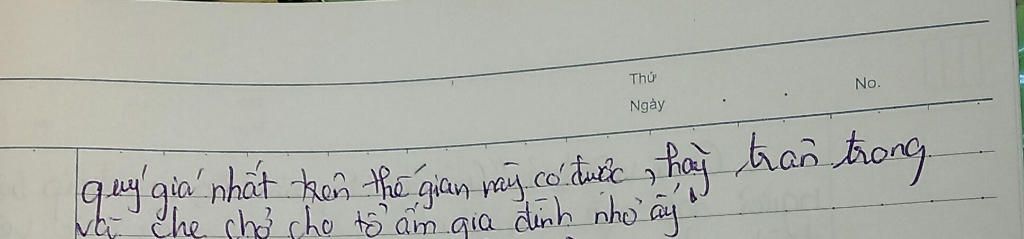 Thứ
No.
Ngày
quý giá nhất trên thế gian này có được, hãy trân trọng
và che chở cho tổ ấm gia đình nhỏ ấy"